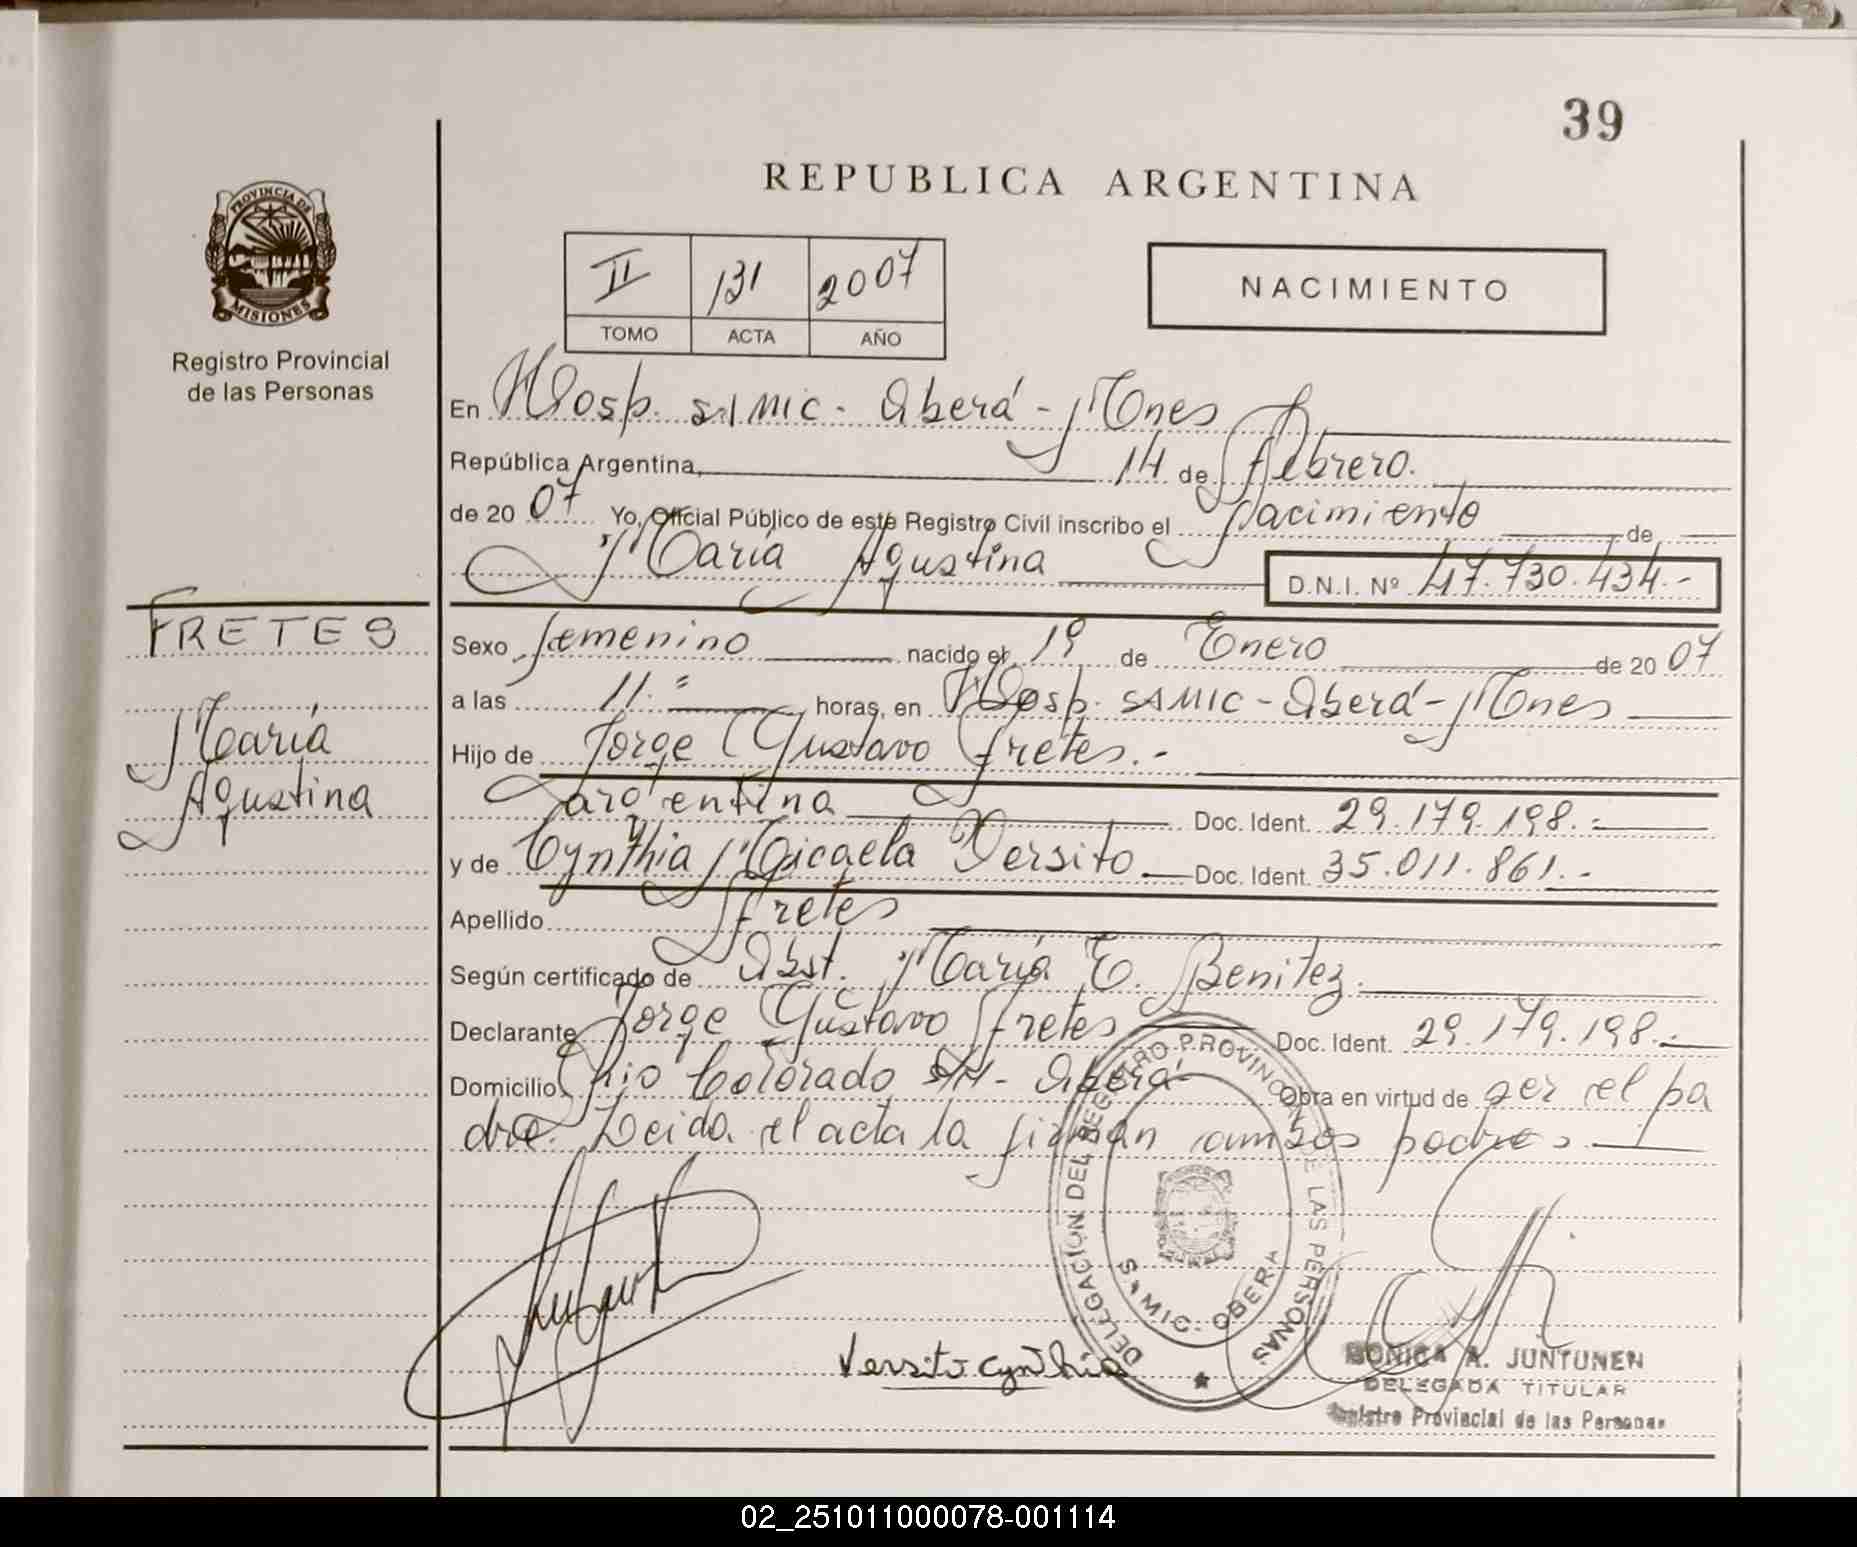 39
REPUBLICA ARGENTINA
PROVINCIA DE
MISIONES
Registro Provincial
de las Personas
II 131 2007
TOMO ACTA AÑO
NACIMIENTO
En Hosp. SAMIC - Oberá - Mnes
República Argentina, 14 de Febrero.
de 20 07 Yo, Oficial Público de este Registro Civil inscribo el Nacimiento de
María Agustina D.N.I. Nº 47.730.434.-
FRETES
María
Agustina
Sexo femenino nacido el 1º de Enero de 20 07
a las 11.= horas, en Hosp. SAMIC - Oberá - Mnes
Hijo de Jorge Gustavo Fretes.-
argentina Doc. Ident. 29.179.198.=
y de Cynthia Micaela Versito Doc. Ident. 35.011.861.-
Apellido Fretes
Según certificado de Obst. María E. Benitez.
Declarante Jorge Gustavo Fretes Doc. Ident. 29.179.198.-
Domicilio Rio Colorado S/N - Oberá - Obra en virtud de ser el pa
dre. Leida el acta la firman ambos padres.
DELEGACION DEL REGISTRO PROVINCIAL DE LAS PERSONAS
SAMIC - OBERA
Versito Cynthia
MONICA A. JUNTUNEN
DELEGADA TITULAR
Registro Provincial de las Personas
02_251011000078-001114